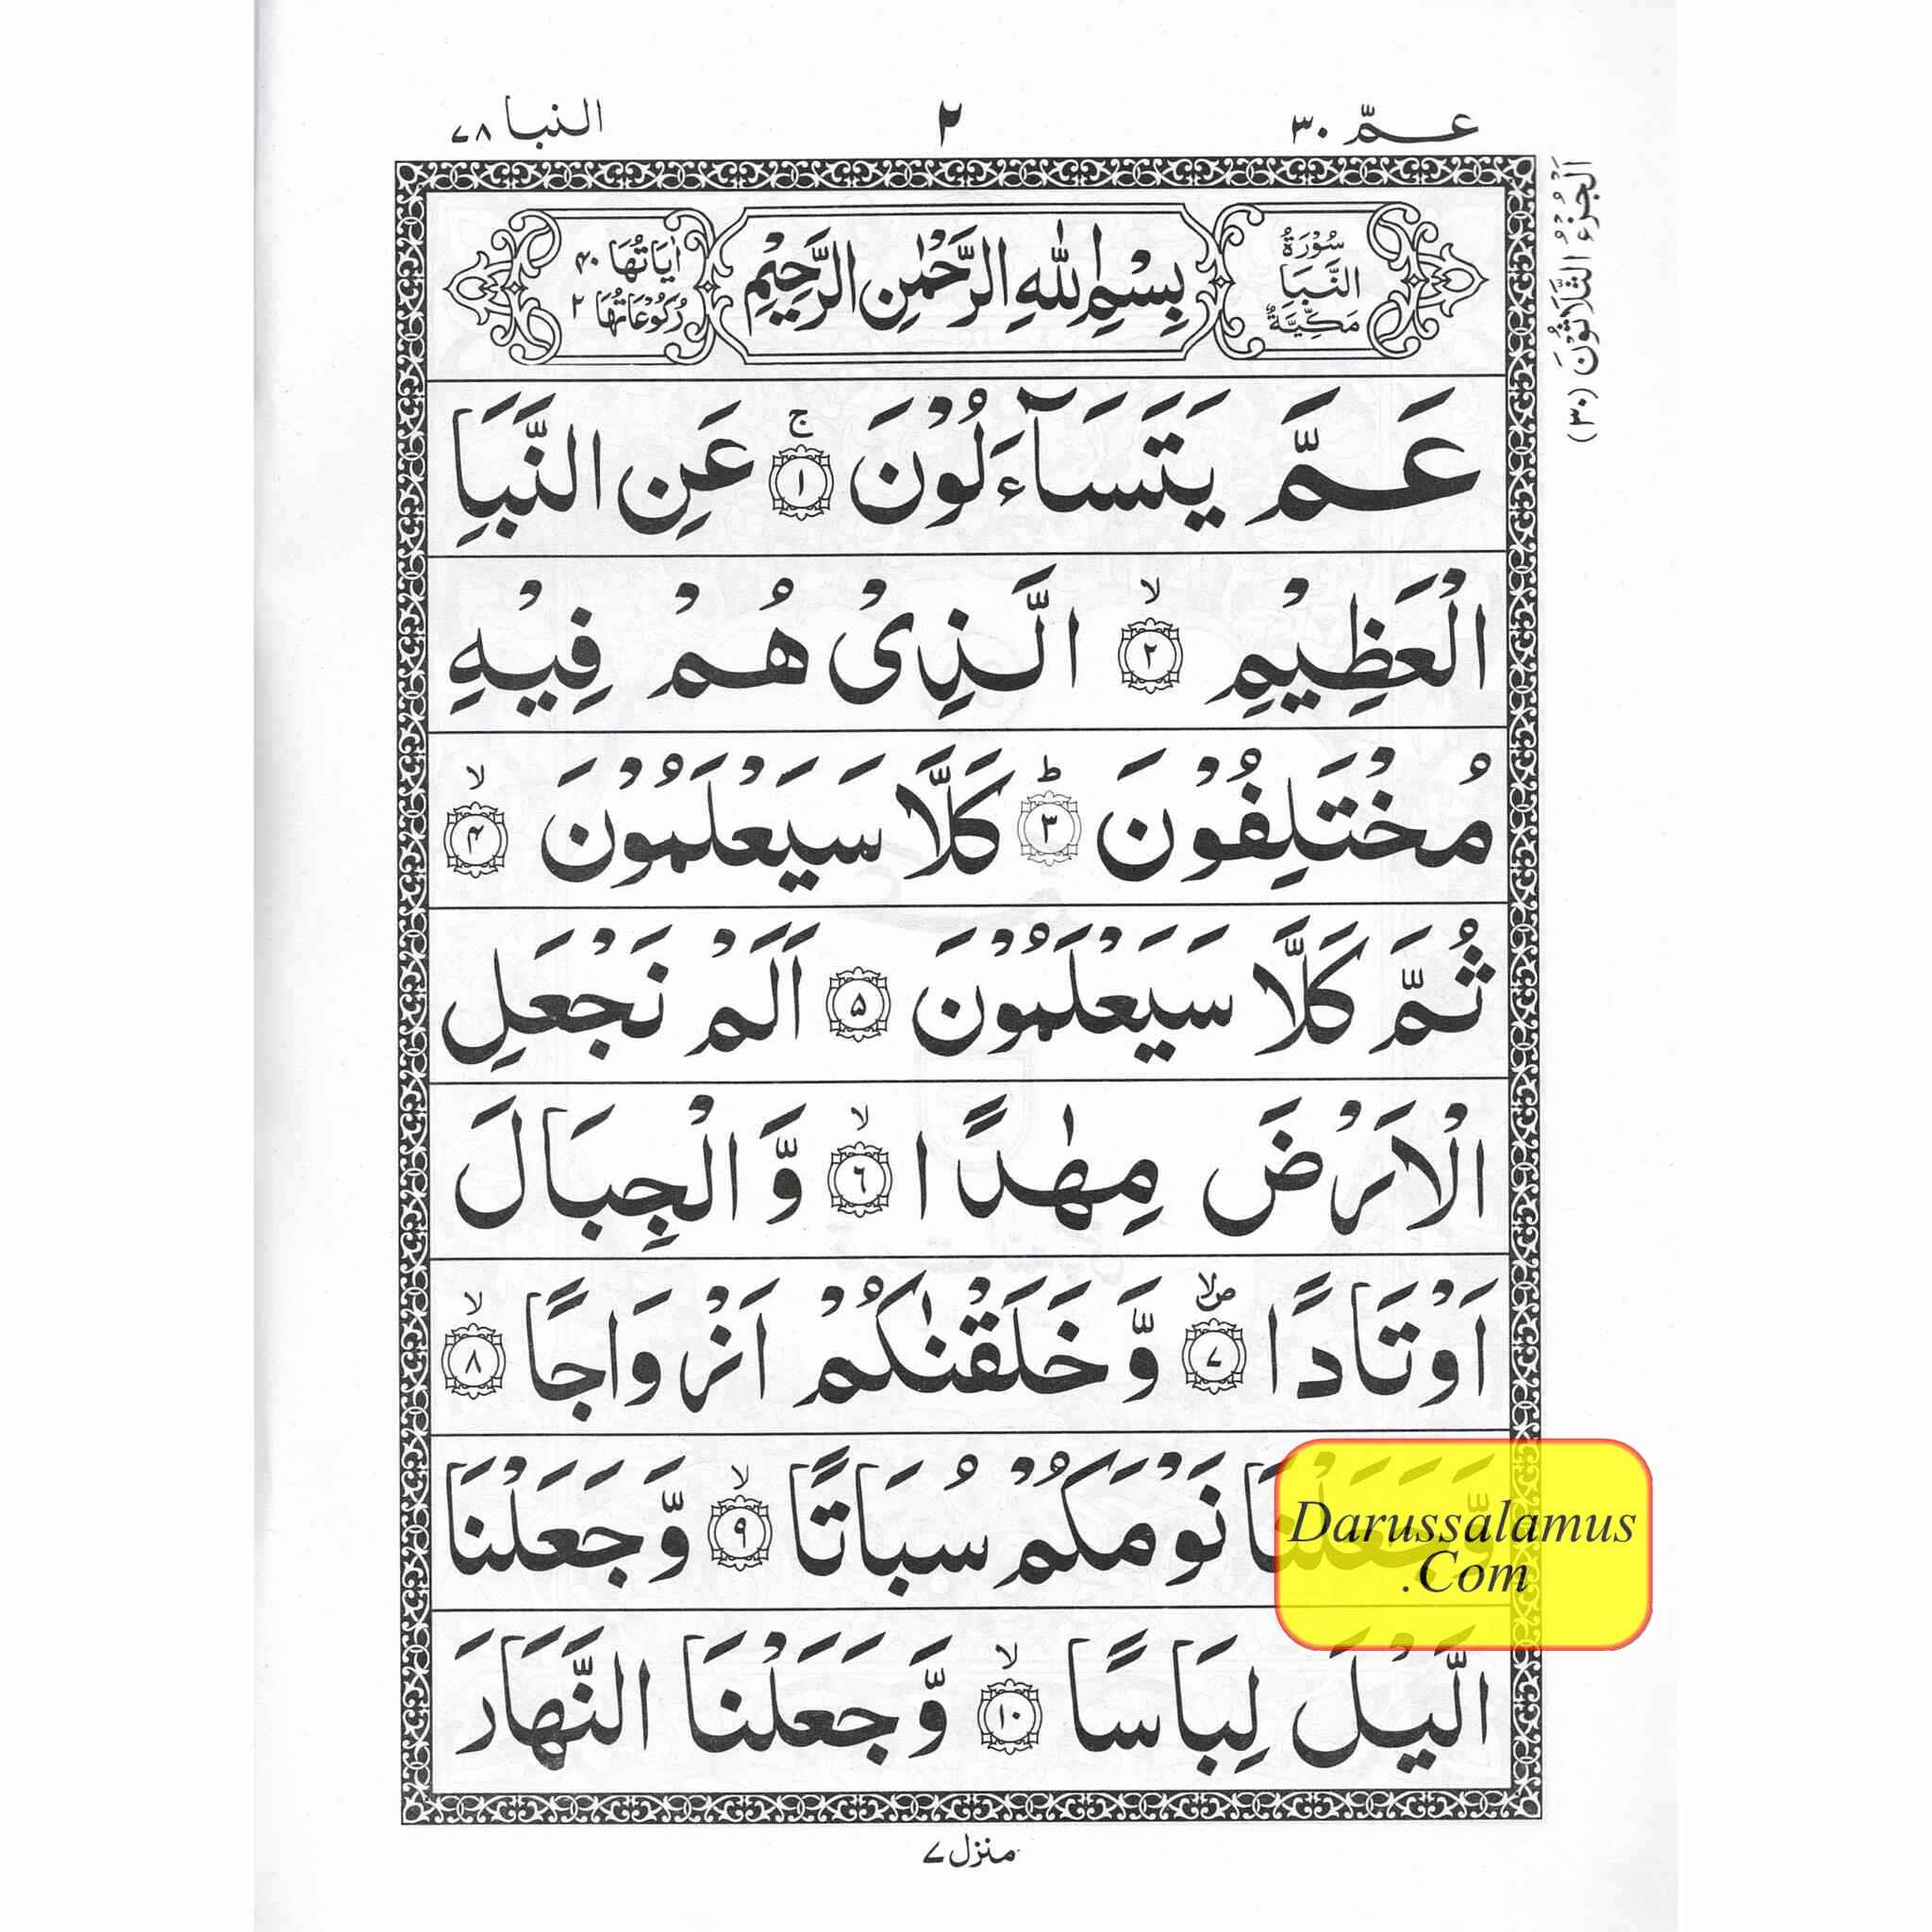 عـمّ ٣٠
٢
النبا ٧٨
اَلْجُزْءُ الثَّلَاثُوْنَ (٣٠)
سُوْرَةُ
النَّبَاِ
مَكِّيَّةٌ
بِسْمِ اللّٰهِ الرَّحْمٰنِ الرَّحِيْمِ
اٰيَاتُهَا ٤٠
رُكُوْعَاتُهَا ٢
عَمَّ يَتَسَآءَلُوْنَ ۚ ١ عَنِ النَّبَاِ
الْعَظِيْمِ ۙ ٢ الَّذِىْ هُمْ فِيْهِ
مُخْتَلِفُوْنَ ؕ ٣ كَلَّا سَيَعْلَمُوْنَ ۙ ٤
ثُمَّ كَلَّا سَيَعْلَمُوْنَ ٥ اَلَمْ نَجْعَلِ
الْاَرْضَ مِهٰدًا ۙ ٦ وَّالْجِبَالَ
اَوْتَادًا ۪ۙ ٧ وَّخَلَقْنٰكُمْ اَزْوَاجًا ۙ ٨
وَّجَعَلْنَا نَوْمَكُمْ سُبَاتًا ۙ ٩ وَّجَعَلْنَا
Darussalamus
.Com
الَّيْلَ لِبَاسًا ۙ ١٠ وَّجَعَلْنَا النَّهَارَ
منزل ٧